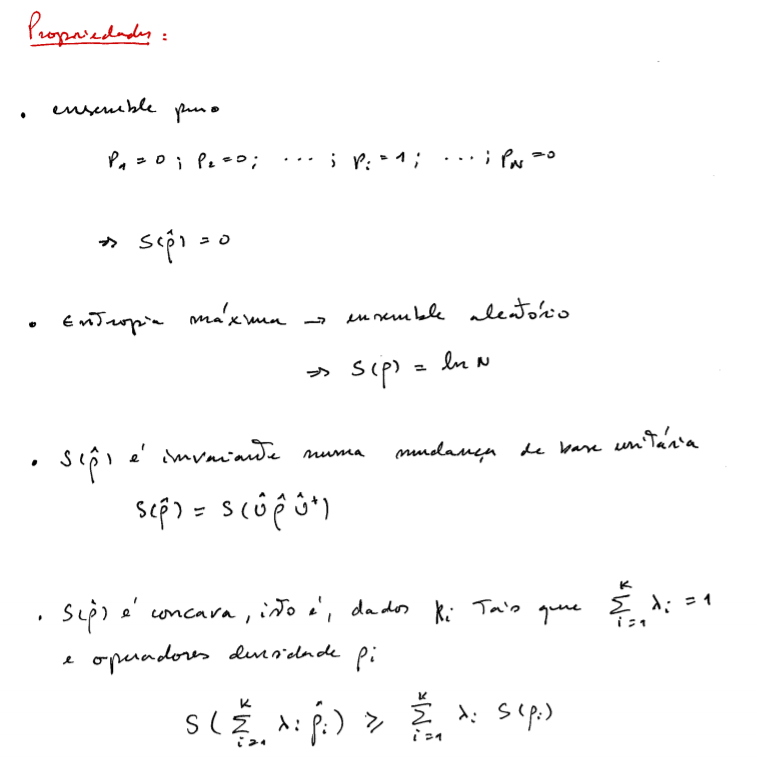 Propriedades:
• ensemble puro
P₁ = 0 ; P₂ = 0 ; ... ; Pᵢ = 1 ; ... ; P_N = 0
⇒ S(ρ̂) = 0
• Entropia máxima → ensemble aleatório
⇒ S(ρ) = ln N
• S(ρ̂) é invariante numa mudança de base unitária
S(ρ̂) = S(Û ρ̂ Û⁺)
• S(ρ̂) é concava, isto é, dados λᵢ Tais que Σ_{i=1}^{K} λᵢ = 1
e operadores densidade ρᵢ
S(Σ_{i=1}^{K} λᵢ ρ̂ᵢ) ≥ Σ_{i=1}^{K} λᵢ S(ρᵢ)